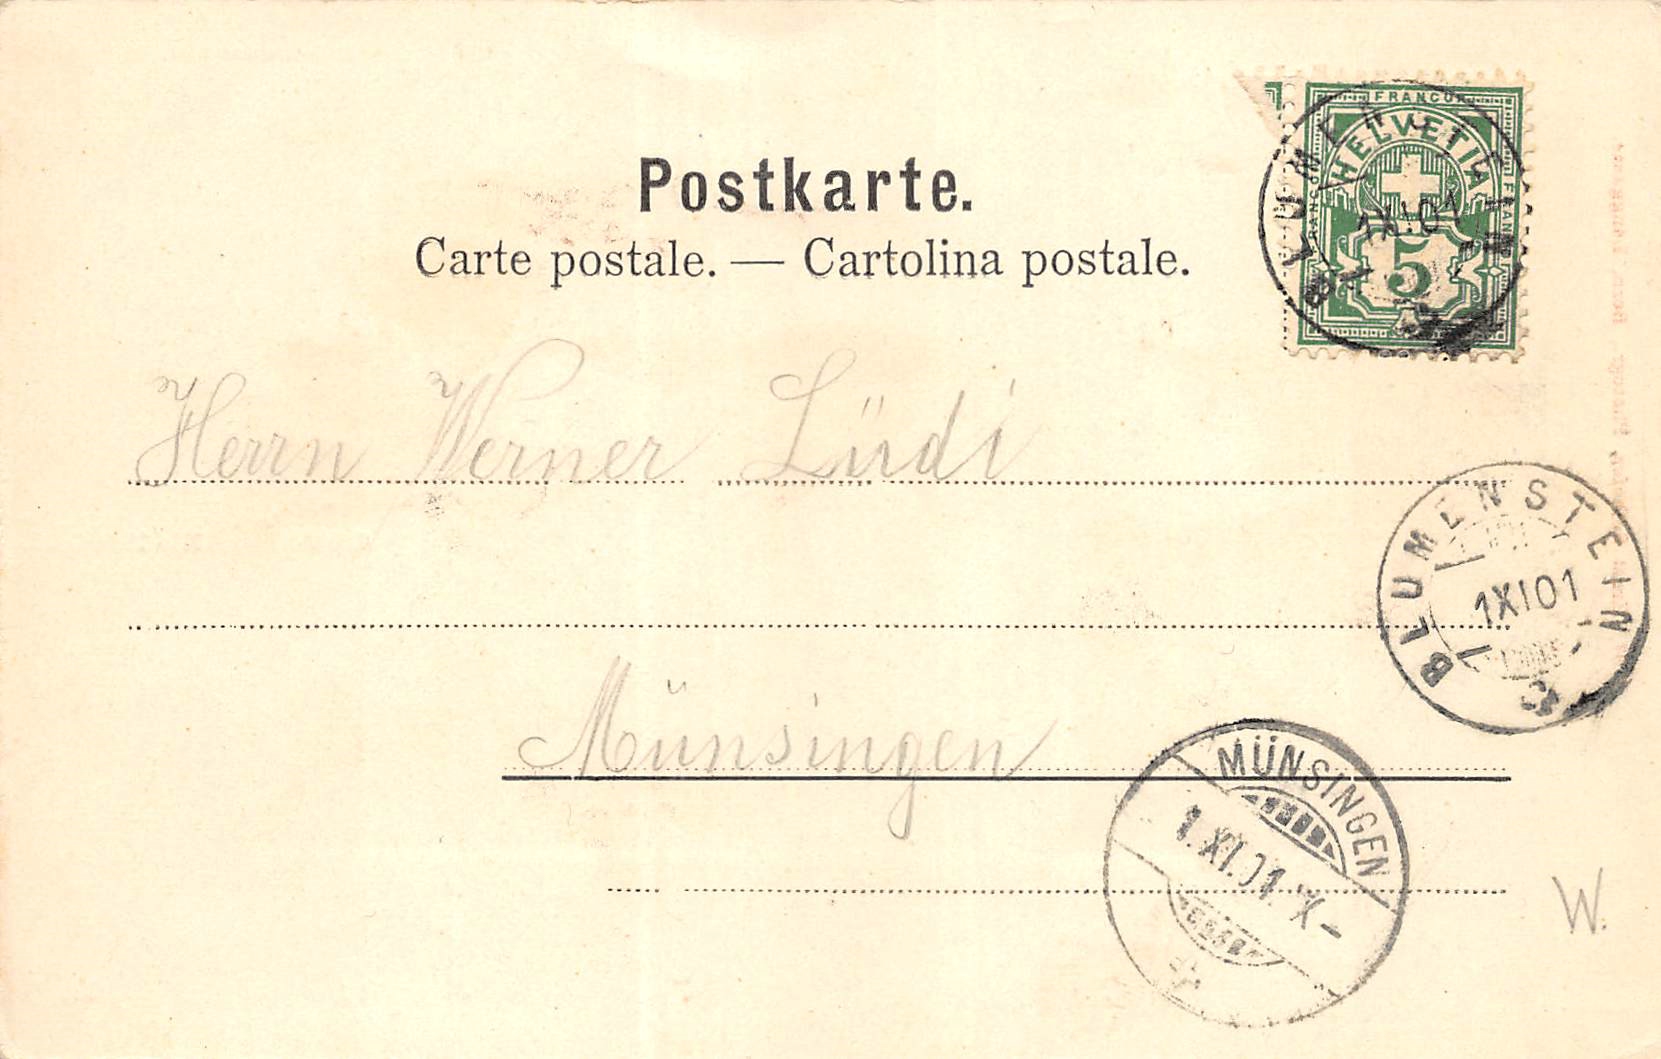 Postkarte.
Carte postale. — Cartolina postale.
FRANCO
HELVETIA
5
BLUMENSTEIN
1 XI 01
Herrn Werner Lüdi
BLUMENSTEIN
1 XI 01
Münsingen
MÜNSINGEN
1.XI.01.
W.